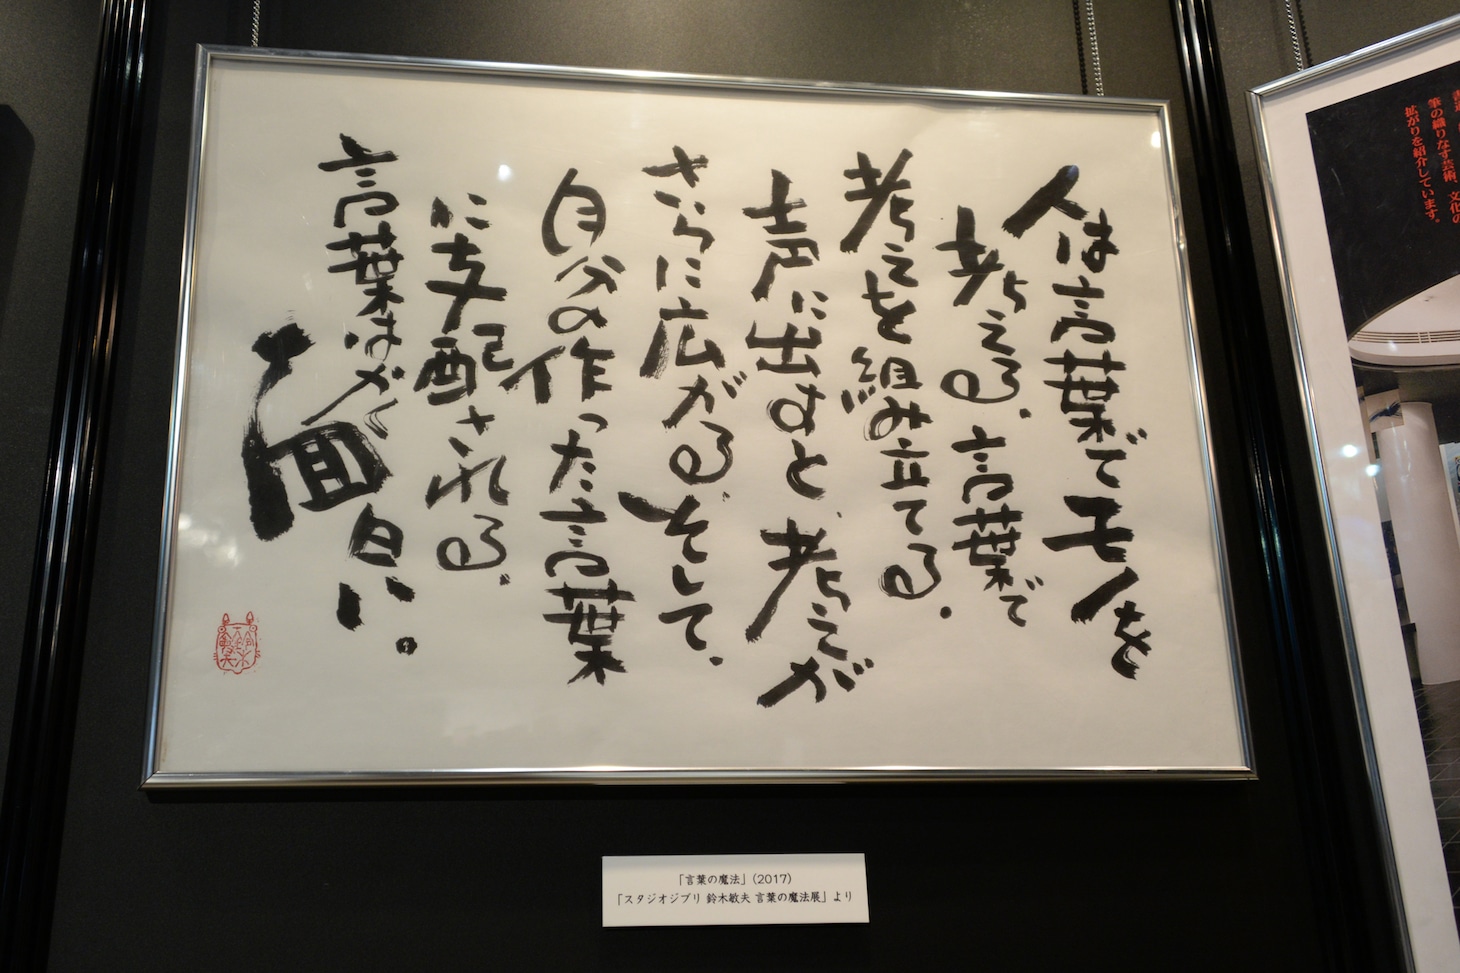 人は言葉でモノを
考える。言葉で
考えを組み立てる。
声に出すと、考えが
さらに広がる。そして、
自分の作った言葉
に支配される。
言葉はかくも
面白い。
「言葉の魔法」(2017)
「スタジオジブリ 鈴木敏夫 言葉の魔法展」より
筆の織りなす芸術、文化の
拡がりを紹介しています。